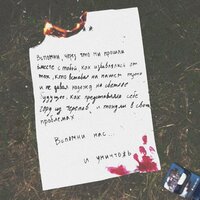 Вспомни, через что мы прошли
вместе с тобой, как избавлялись от
тех, кто вставал на нашем пути
и не давал надежд на светлое
будущее. Как представляли себе
2020 из черепов, и тонули в своих
проблемах
Вспомни нас...
и уничтожь